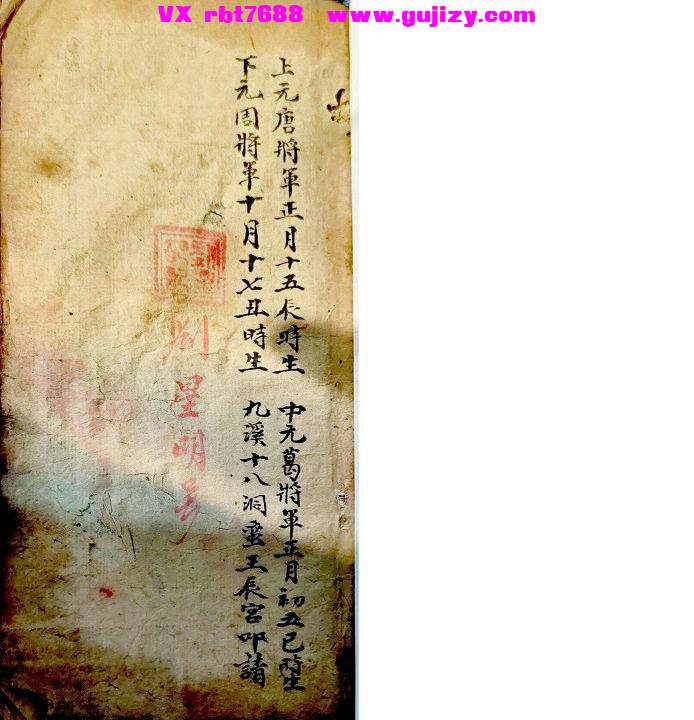 VX rbt7688 www.gujizy.com
上元唐將軍正月十五辰時生 中元葛將軍正月初五巳時生
下元周將軍十月十七丑時生 九溪十八洞蛮王辰宮叩請
刘星明号